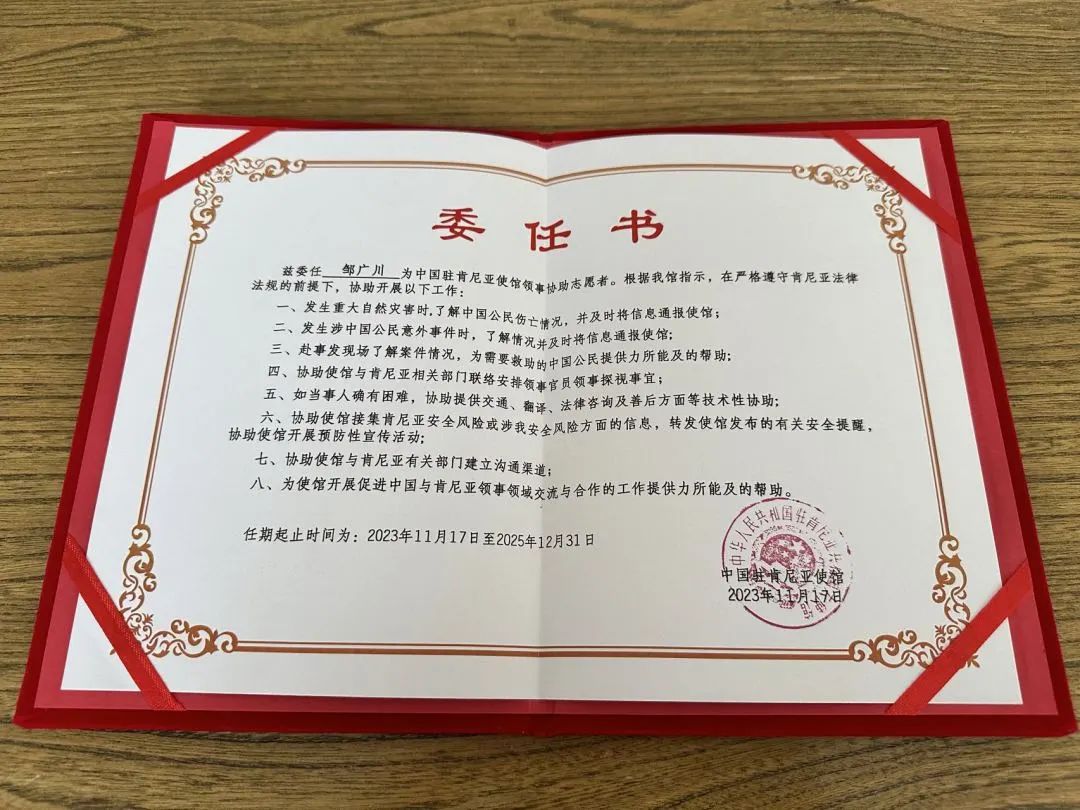 委任书
兹委任 邹广川 为中国驻肯尼亚使馆领事协助志愿者。根据我馆指示，在严格遵守肯尼亚法律
法规的前提下，协助开展以下工作：
一、发生重大自然灾害时,了解中国公民伤亡情况，并及时将信息通报使馆；
二、发生涉中国公民意外事件时，了解情况并及时将信息通报使馆；
三、赴事发现场了解案件情况，为需要救助的中国公民提供力所能及的帮助；
四、协助使馆与肯尼亚相关部门联络安排领事官员领事探视事宜；
五、如当事人确有困难，协助提供交通、翻译、法律咨询及善后方面等技术性协助；
六、协助使馆接集肯尼亚安全风险或涉我安全风险方面的信息，转发使馆发布的有关安全提醒，
协助使馆开展预防性宣传活动；
七、协助使馆与肯尼亚有关部门建立沟通渠道；
八、为使馆开展促进中国与肯尼亚领事领域交流与合作的工作提供力所能及的帮助。
任期起止时间为：2023年11月17日至2025年12月31日
中华人民共和国驻肯尼亚共
中国驻肯尼亚使馆
2023年11月17日